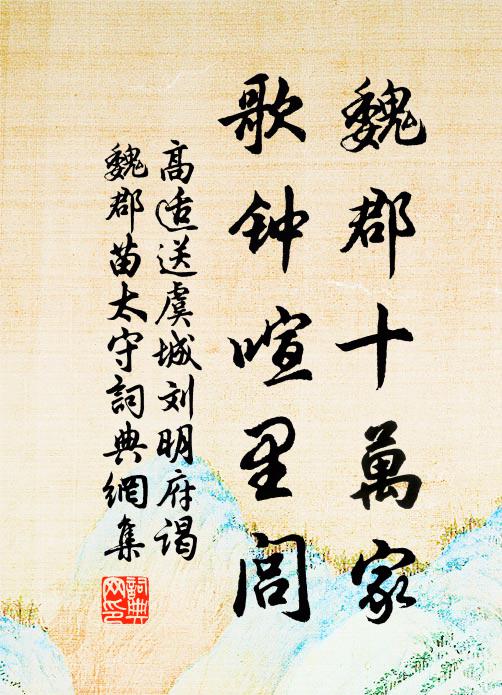 魏郡十萬家
歌钟喧里閭
高适送虞城刘明府谒
魏郡苗太守詞典網集
詞典网印